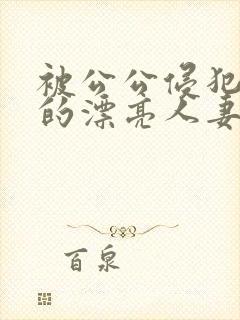 被公公侵犯
的漂亮人妻
百泉